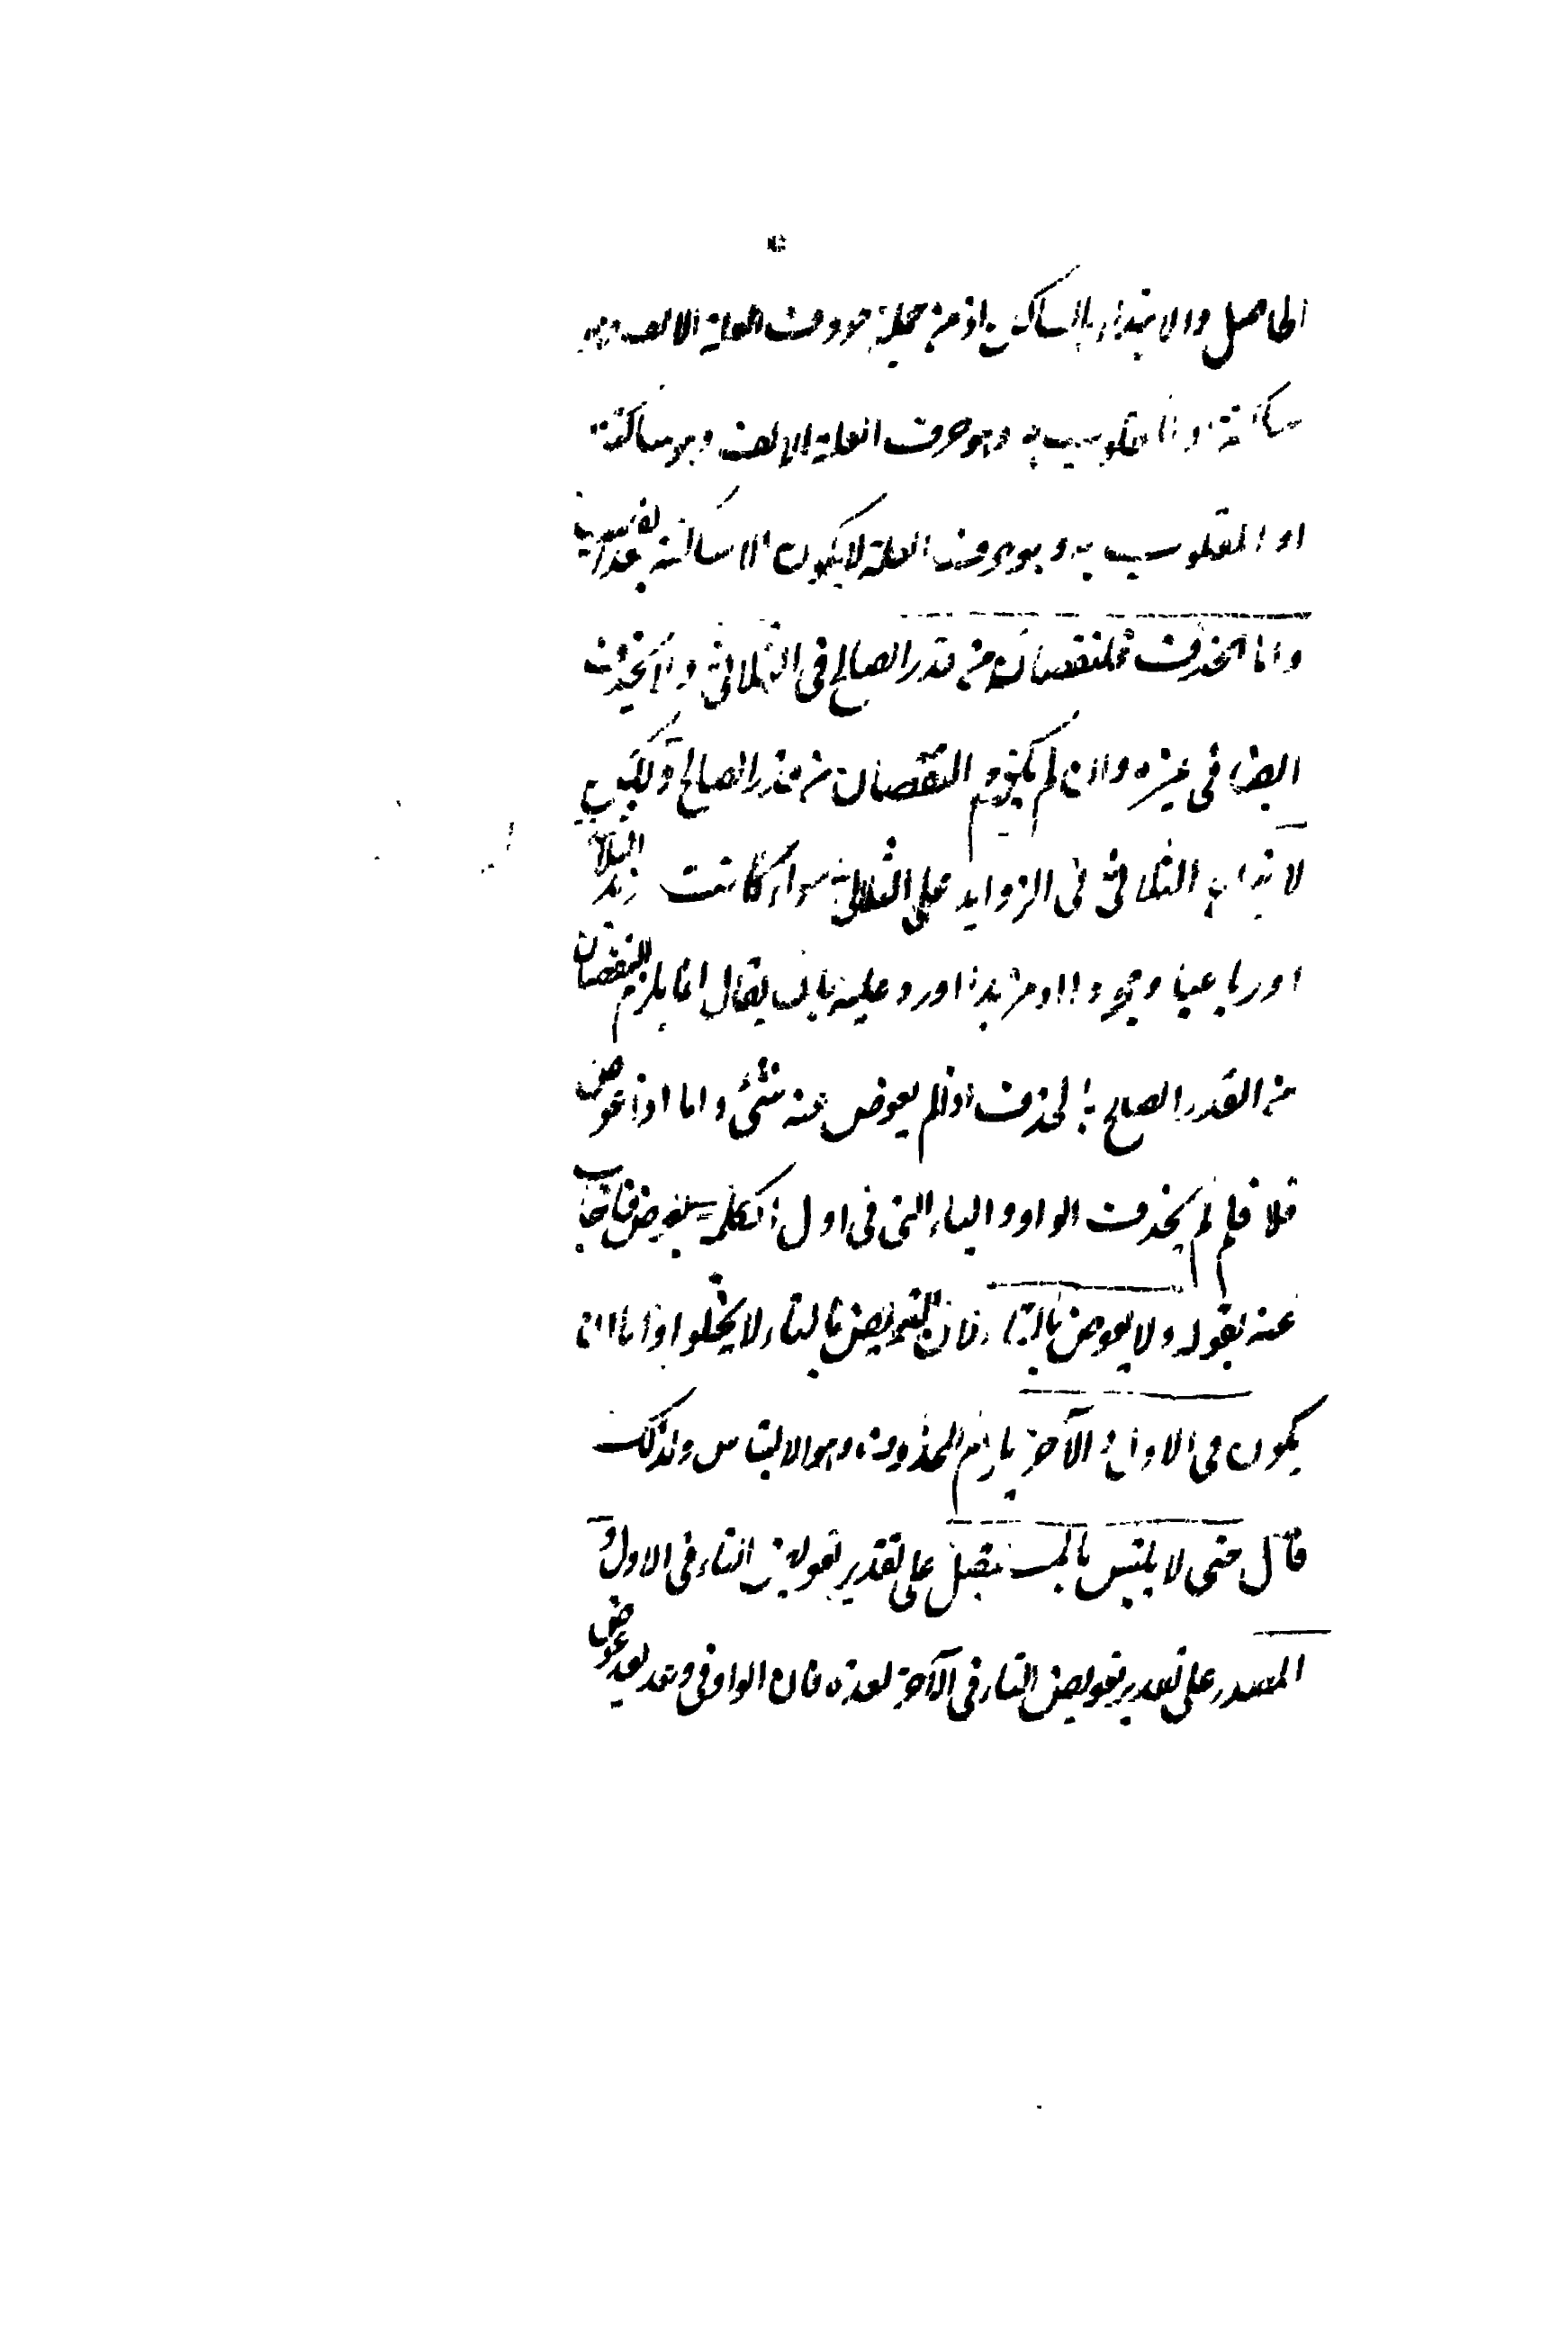 الحاصل والابتداء بالساكن اذ من جملة حروف العلة الالف وهو
ساكنة والمقلوب به وهو حرف العلة الالف وهو ساكنة
او المقلوب به وهو حروف العلة لا يكون الا ساكنة بعد
واما الحذف فلنقصان من قدر الصالح في الثلاثي ولا يحذف
ايضا في غيره وان لم يلزم النقصان من قدر الصالح
لاتباع الثلاثي في الزوايد على الثلاثي سواء كانت
او رباعيا وجودا او مزيدا اورد عليه بان يقال انما يلزم النقصان
من القدر الصالح بالحذف اذا لم يعوض عنه شئ واما اذا عوض
فلا فلم لم يحذف الواو والياء التي في اول الكلمة بتعويض فاجاب
عنه بقوله ولا يعوض بالتاء فان التعويض بالتاء لا يخلوا اما ان
يكون في الاول او الآخر يلزم المحذور وهو الالتباس ولذلك
قال حتى لا يلتبس بالمستقبل على تقدير تعويض التاء في الاول و
المصدر على تقدير تعويض التاء في الآخر لعدة فان الواو في وعد بعد عوض